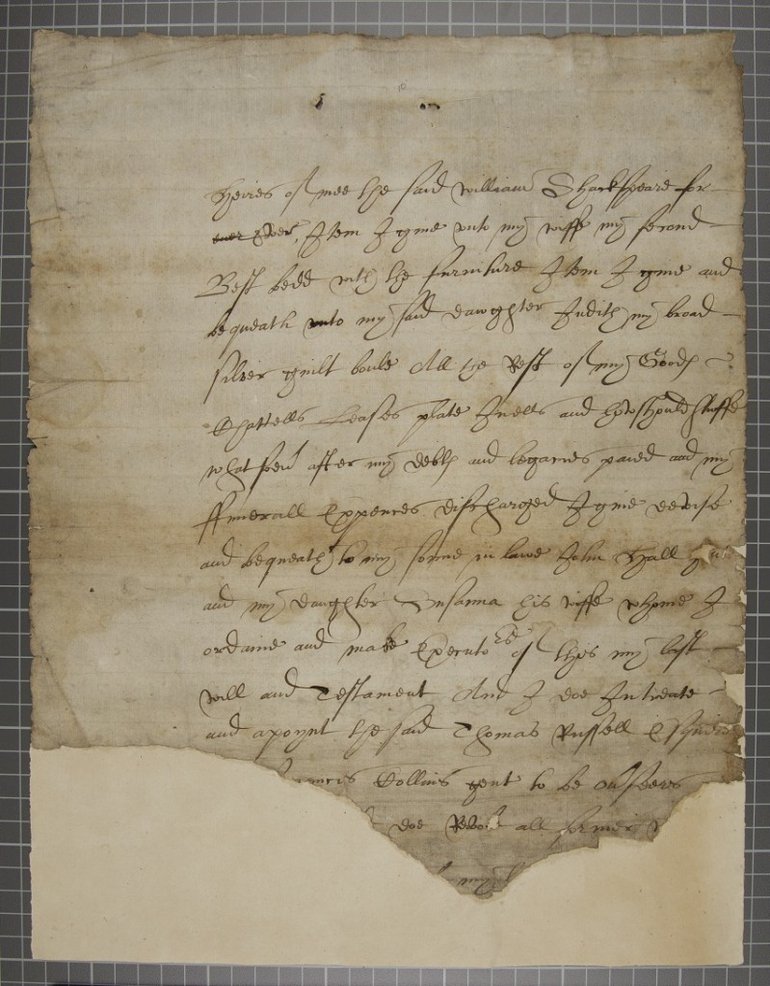 heires of mee the said william Shackspeare for
ever, Item I giue vnto my wiffe my second
Best bedd with the furniture Item I giue and
bequeath vnto my said dawghter Judith my broad
silver guilt boule All the Rest of my Goods
Chattells Leases plate Juells and howshould stuffe
whatsoeu after my debts and legacies paied and my
ffunerall Expences discharged I giue devise
and bequeath to my sonne in lawe John Hall
and my daughter Susanna his wiffe whome I
ordaine and make Executors of this my last
will and Testament And I doe Intreate
and apoynt the said Thomas Russell
Collins gent to be
doe Revoke all former
my